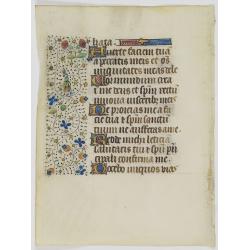 liata.
Averte faciem tuā
a peccatis meis et oēs
iniquitates meas dele
Cor mundum crea
i me deus et spm̄ rectū
innova i visceribꝫ meis
Ne proicias me a fa
cie tua et spm̄ sanctū
tuum ne auferas a me.
Redde michi leticiā
salutaris tui et spū prin
cipali confirma me.
Docebo iniquos vias